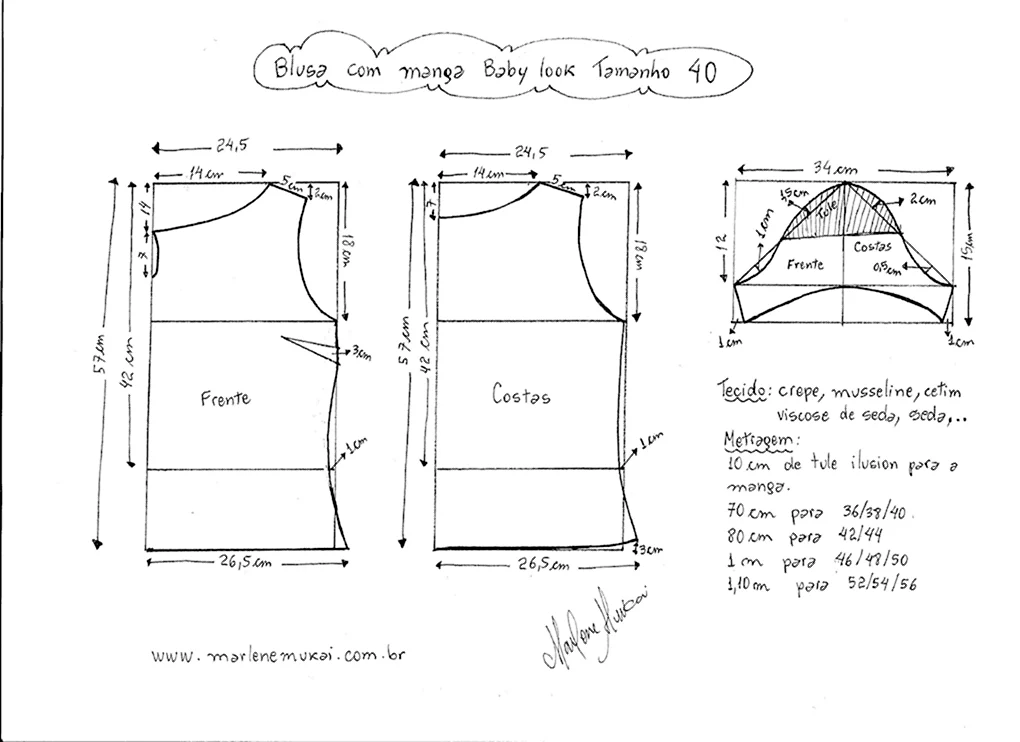 Blusa com manga Baby look Tamanho 40
24,5
14 cm
5cm
2cm
14
7
18 cm
57 cm
42 cm
3cm
Frente
1cm
26,5 cm
24,5
14 cm
5cm
2cm
7
18 cm
57 cm
42 cm
Costas
1cm
3cm
26,5 cm
34 cm
1,5cm
2cm
Tule
1cm
12
Costas
Frente
0,5cm
15cm
1cm
1cm
Tecido: crepe, musseline, cetim
viscose de seda, seda,...
Metragem:
10 cm de tule ilusion para a
manga.
70 cm para 36/38/40.
80 cm para 42/44
1 m para 46/48/50
1,10m para 52/54/56
Marlene Mukai
www.marlenemukai.com.br